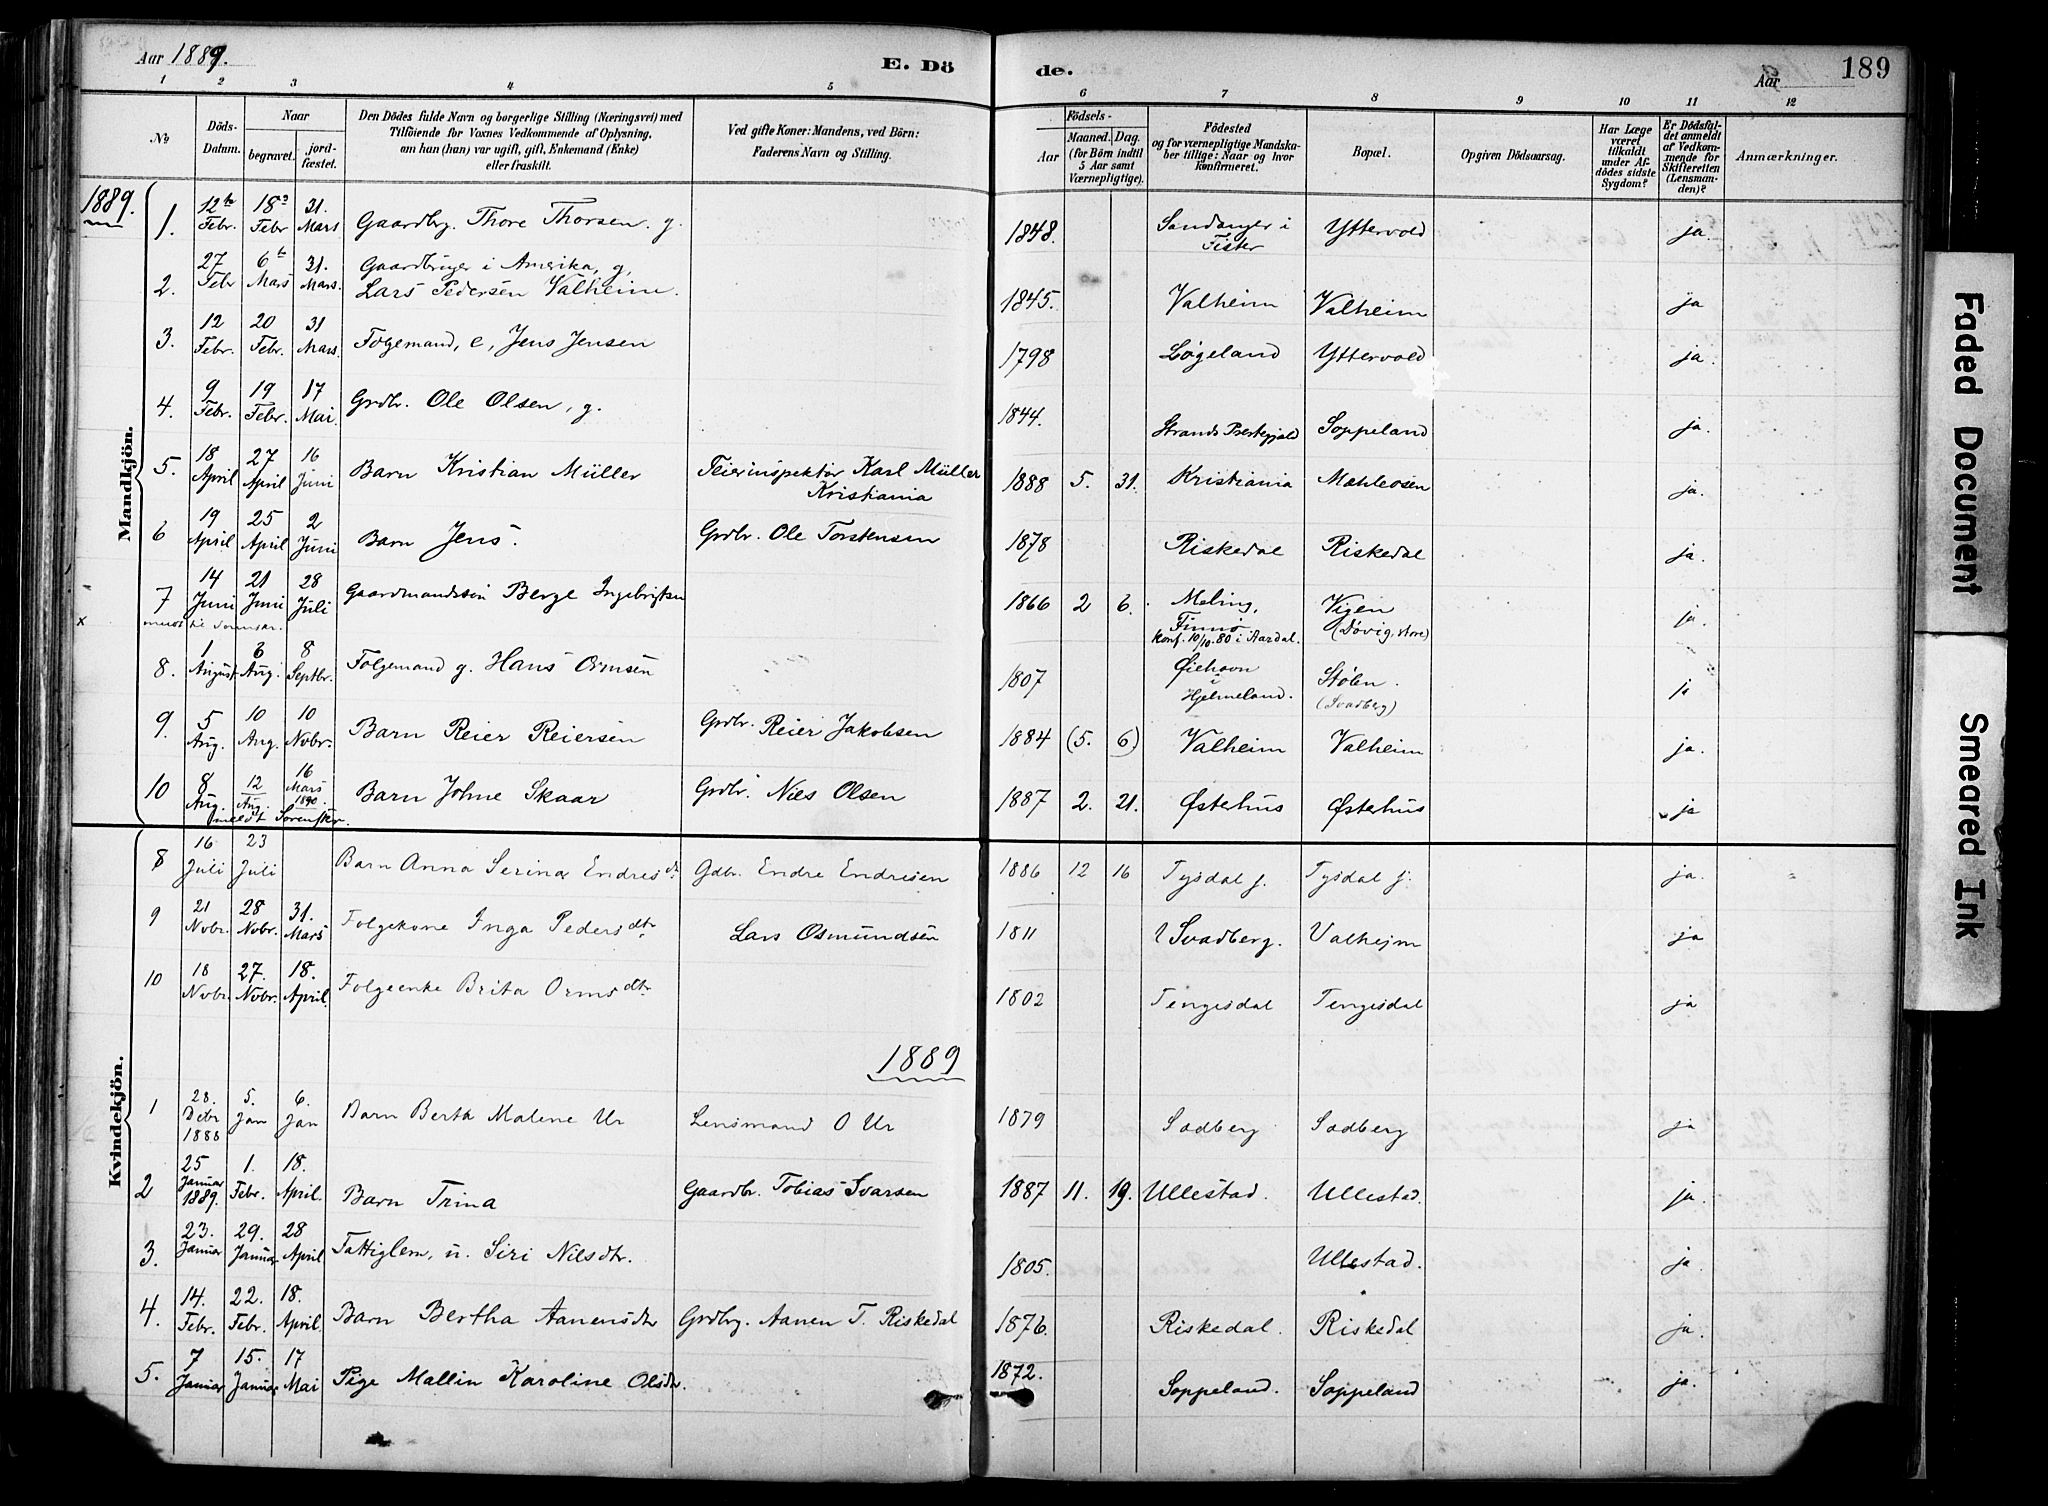 Aar 1889.
E. Dö
de.
Aar
189
1 2 3 4 5 6 7 8 9 10 11 12
No
Döds-Datum.
Naar
begravet.
jord-fæstet.
Den Dödes fulde Navn og borgerlige Stilling (Næringsvei) med
Tilföiende for Voxnes Vedkommende af Oplysning,
om han (hun) var ugift, gift, Enkemand (Enke)
eller fraskilt.
Ved gifte Koner: Mandens, ved Börn:
Faderens Navn og Stilling.
Födsels-
Aar
Maaned. Dag.
(for Börn indtil
5 Aar samt
Værnepligtige).
Födested
og for værnepligtige Mandska-
ber tillige: Naar og hvor
konfirmeret.
Bopæl.
Opgiven Dödsaarsag.
Har Læge
været
tilkaldt
under Af-
dödes sidste
Sygdom?
Er Dödsfal-
det anmeldt
af Vedkom-
mende for
Skifteretten
(Lensman-
den)?
Anmærkninger.
Mandkjön.
1889.
1. 12te Febr. 18de Febr 31. Mars Gaardbrg. Thore Thorsen. g. 1848. Sandanger i Fister Yttervold ja.
2. 27 Febr 6te Mars 31. Mars. Gaardbruger i Amerika, g, Lars Pedersen Valheim. 1845. Valheim Valheim ja
3. 12 Febr. 20 Febr. 31 Mars. Folgemand, e, Jens Jensen 1798 Løgeland Yttervold ja.
4. 9 Febr. 19 Febr. 17 Mai. Grdbr. Ole Olsen, g. 1844. Strands Prestegjeld Soppeland ja.
5. 18 April 27 April 16 Juni Barn Kristian Müller Feierinspektør Karl Müller Kristiania 1888 5. 31. Kristiania Mæhleosen ja.
6 19 April 25 April 2 Juni Barn Jens. Grdbr. Ole Torstensen 1878 Riskedal Riskedal ja.
x 7 14 Juni 21 Juni 28 Juli Gaardmandssøn Berge Ingebrigtsen 1866 2 6. Meling, Finnø konf. 10/10.80 i Aardal. Vigen (Døvig, store) ja.
8. 1 August 6 Aug. 8 Septbr. Folgemand g. Hans Ormsen 1807 Øiehavn i Hjelmeland. Stølen. (Svadberg) ja
9. 5 Aug. 10 Aug. 10 Novbr. Barn Reier Reiersen Grdbr. Reier Jakobsen 1884 (5. 6) Valheim Valheim ja.
10 8 Aug. 12 Aug. 16 Mars 1890. Barn Johne Skaar Grdbr. Niels Olsen 1887 2. 21. Østerhus Østerhus ja
Kvindekjön.
8 16 Juli 23 Juli Barn Anna Serina Endresdtr. Gdbr. Endre Endresen 1886 12 16 Tysdal j. Tysdal j. ja.
9 21 Novbr. 28 Novbr. 31. Mars Folgekone Inga Pedersdtr. Lars Osmundsen 1811 Svadberg. Valheim ja
10 18 Novbr. 27. Novbr. 18. April. Folgeenke Brita Ormsdtr 1802 Tengesdal Tengesdal ja
1889
1 28. Debr 1888 5. Jan 6. Jan Barn Berta Malene Ur Lensmand O Ur 1879 Sadberg Sadberg ja
2 25 Januar 1889. 1. Febr. 18. April. Barn Trina Gaardbr. Tobias Svarsen 1887 11. 19. Ullestad. Ullestad. ja.
3. 23. Januar 29. Januar 28 April Fattiglem, u. Siri Nilsdtr. 1805. Ullestad. ja.
4. 14. Febr. 22. Febr. 18. April. Barn Bertha Aanensdtr Grdbrg. Aanen T. Riskedal 1876. Riskedal. Riskedal ja.
5. 7 Januar 15. Januar 17 Mai Pige Mallin Karoline Olsdtr. 1872. Soppeland. Soppeland ja.
Faded Document
Smeared Ink